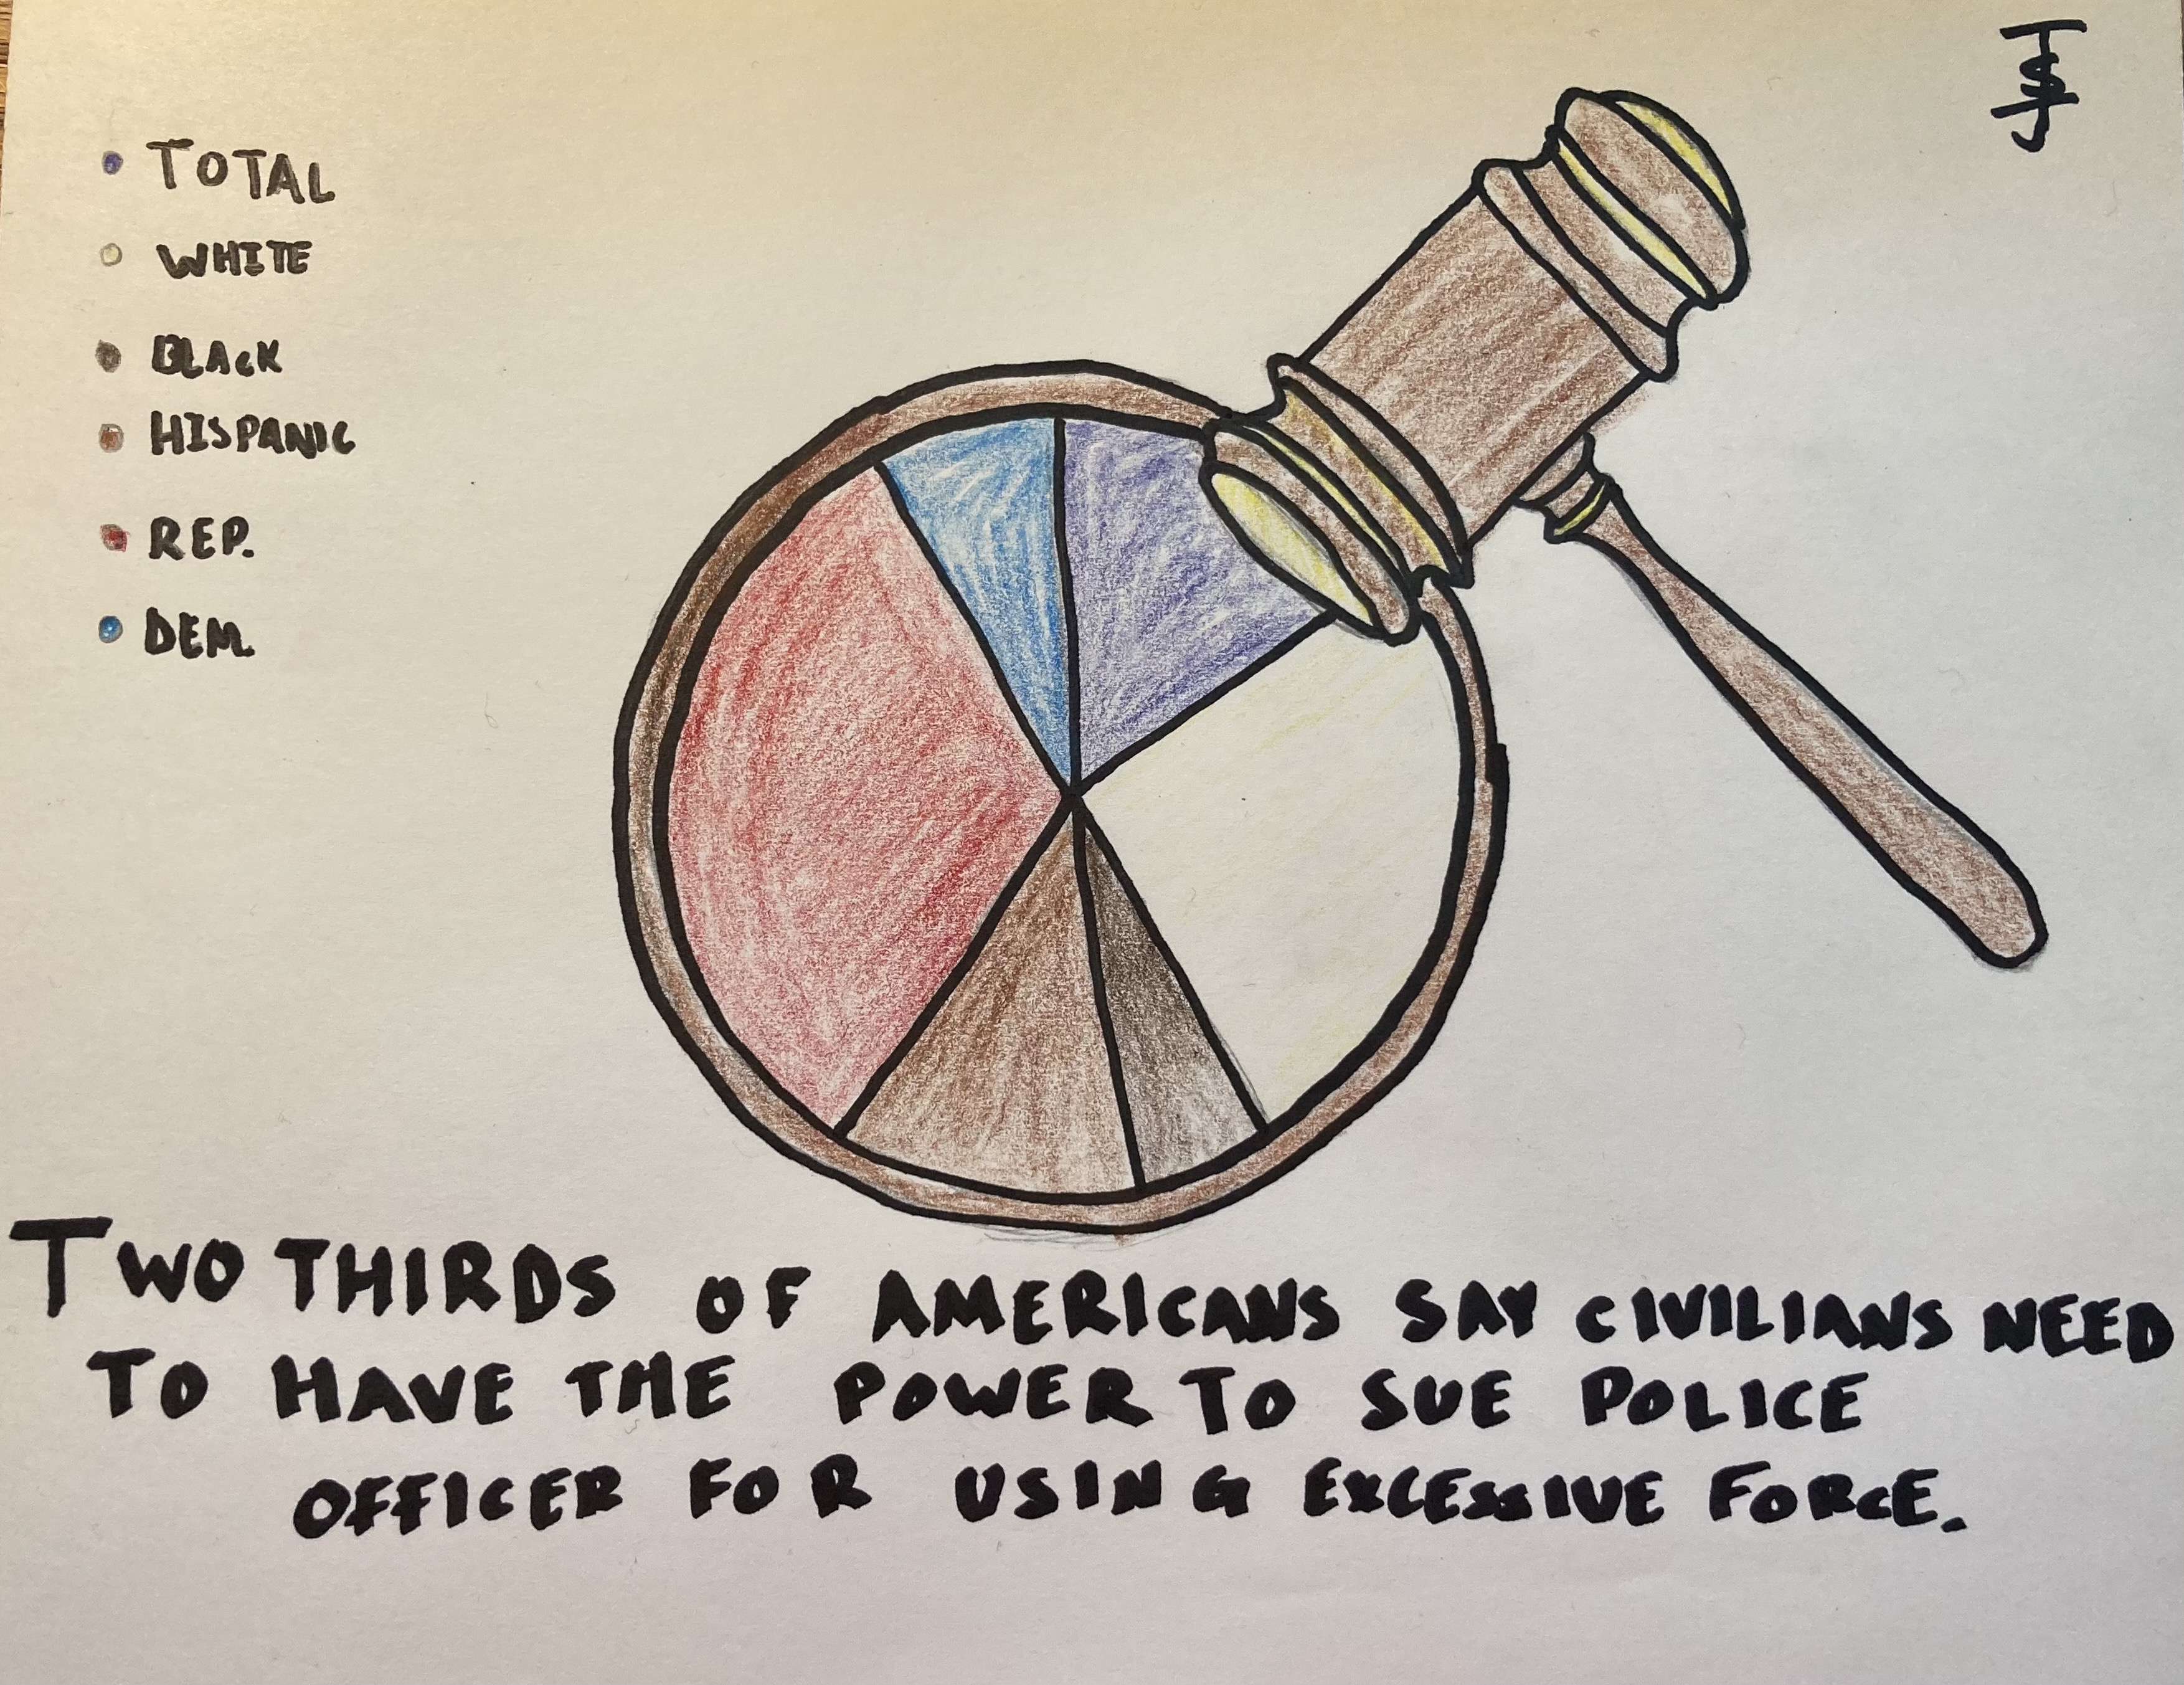 TOTAL
WHITE
BLACK
HISPANIC
REP.
DEM.
TWO THIRDS OF AMERICANS SAY CIVILIANS NEED
TO HAVE THE POWER TO SUE POLICE
OFFICER FOR USING EXCESSIVE FORCE.